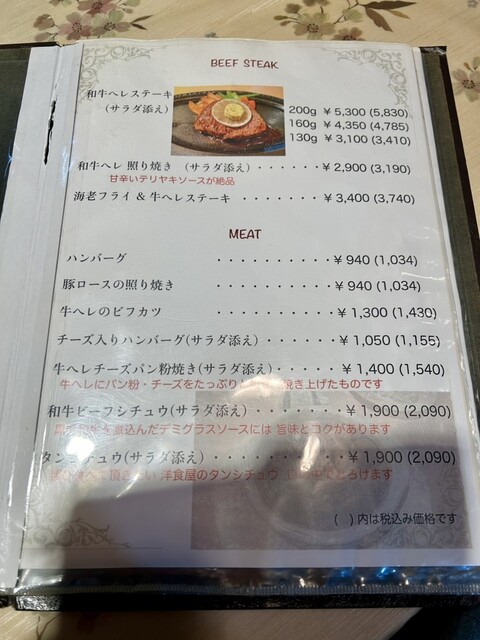 BEEF STEAK
和牛ヘレステーキ
(サラダ添え)
200g ¥5,300 (5,830)
160g ¥4,350 (4,785)
130g ¥3,100 (3,410)
和牛ヘレ 照り焼き (サラダ添え) ・・・・・・ ¥2,900 (3,190)
甘辛いテリヤキソースが絶品
海老フライ & 牛ヘレステーキ ・・・・・・・ ¥3,400 (3,740)
MEAT
ハンバーグ ・・・・・・・・・・ ¥940 (1,034)
豚ロースの照り焼き ・・・・・・・・・・ ¥940 (1,034)
牛ヘレのビフカツ ・・・・・・・・・・ ¥1,300 (1,430)
チーズ入りハンバーグ(サラダ添え) ・・・・・・・ ¥1,050 (1,155)
牛ヘレチーズパン粉焼き(サラダ添え)・・・・・・・ ¥1,400 (1,540)
牛ヘレにパン粉・チーズをたっぷり 焼き上げたものです
和牛ビーフシチュウ(サラダ添え) ・・・・・・・ ¥1,900 (2,090)
込んだデミグラスソースには 旨味とコクがあります
タンシチュウ(サラダ添え) ・・・・・・・・・・ ¥1,900 (2,090)
頂きたい 洋食屋のタンシチュウ とろけます
( )内は税込み価格です